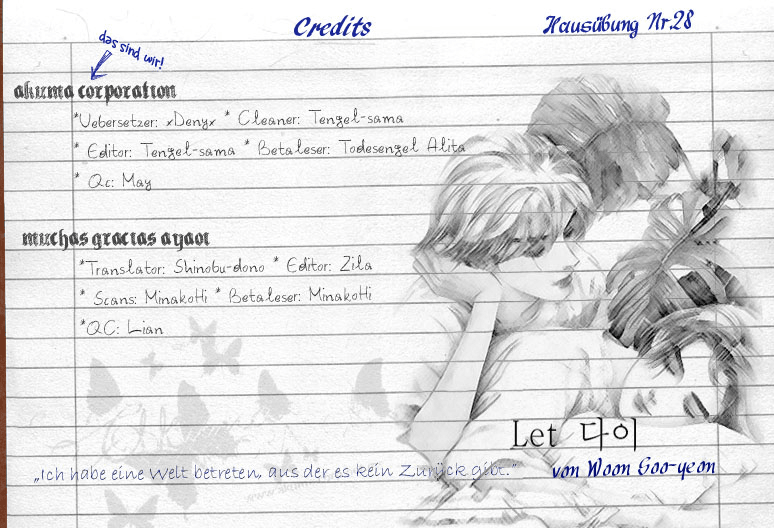 Credits
Hausübung Nr.28
das sind wir!
akuma corporation
*Uebersetzer: xDenyx * Cleaner: Tengel-sama
* Editor: Tengel-sama * Betaleser: Todesengel Alita
* Qc: May
muchas gracias ayaoi
*Translator: Shinobu-dono * Editor: Zila
* Scans: MinakoHi * Betaleser: MinakoHi
*QC: Lian
Let 다이
„Ich habe eine Welt betreten, aus der es kein Zurück gibt."
von Woon Soo-yeon